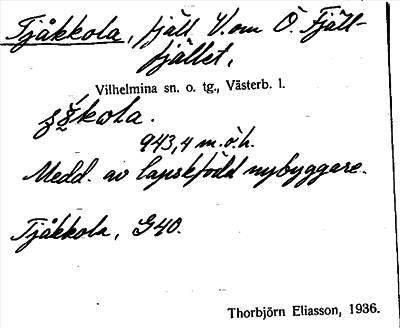 Tjåkkola, fjäll V. om Ö. Fjäll-
fjället,
Vilhelmina sn. o. tg., Västerb. l.
943,4 m.ö.h.
Medd. av lapskfödd nybyggare.
Tjåkkola, G40.
Thorbjörn Eliasson, 1936.